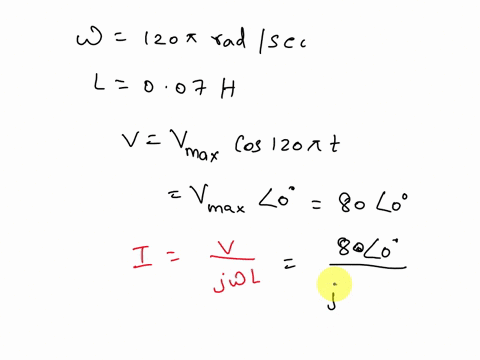 ω = 120π rad/sec
L = 0.07 H
V = Vmax cos 120πt
= Vmax ∠0° = 80 ∠0°
I = V/jωL = 80∠0°/j